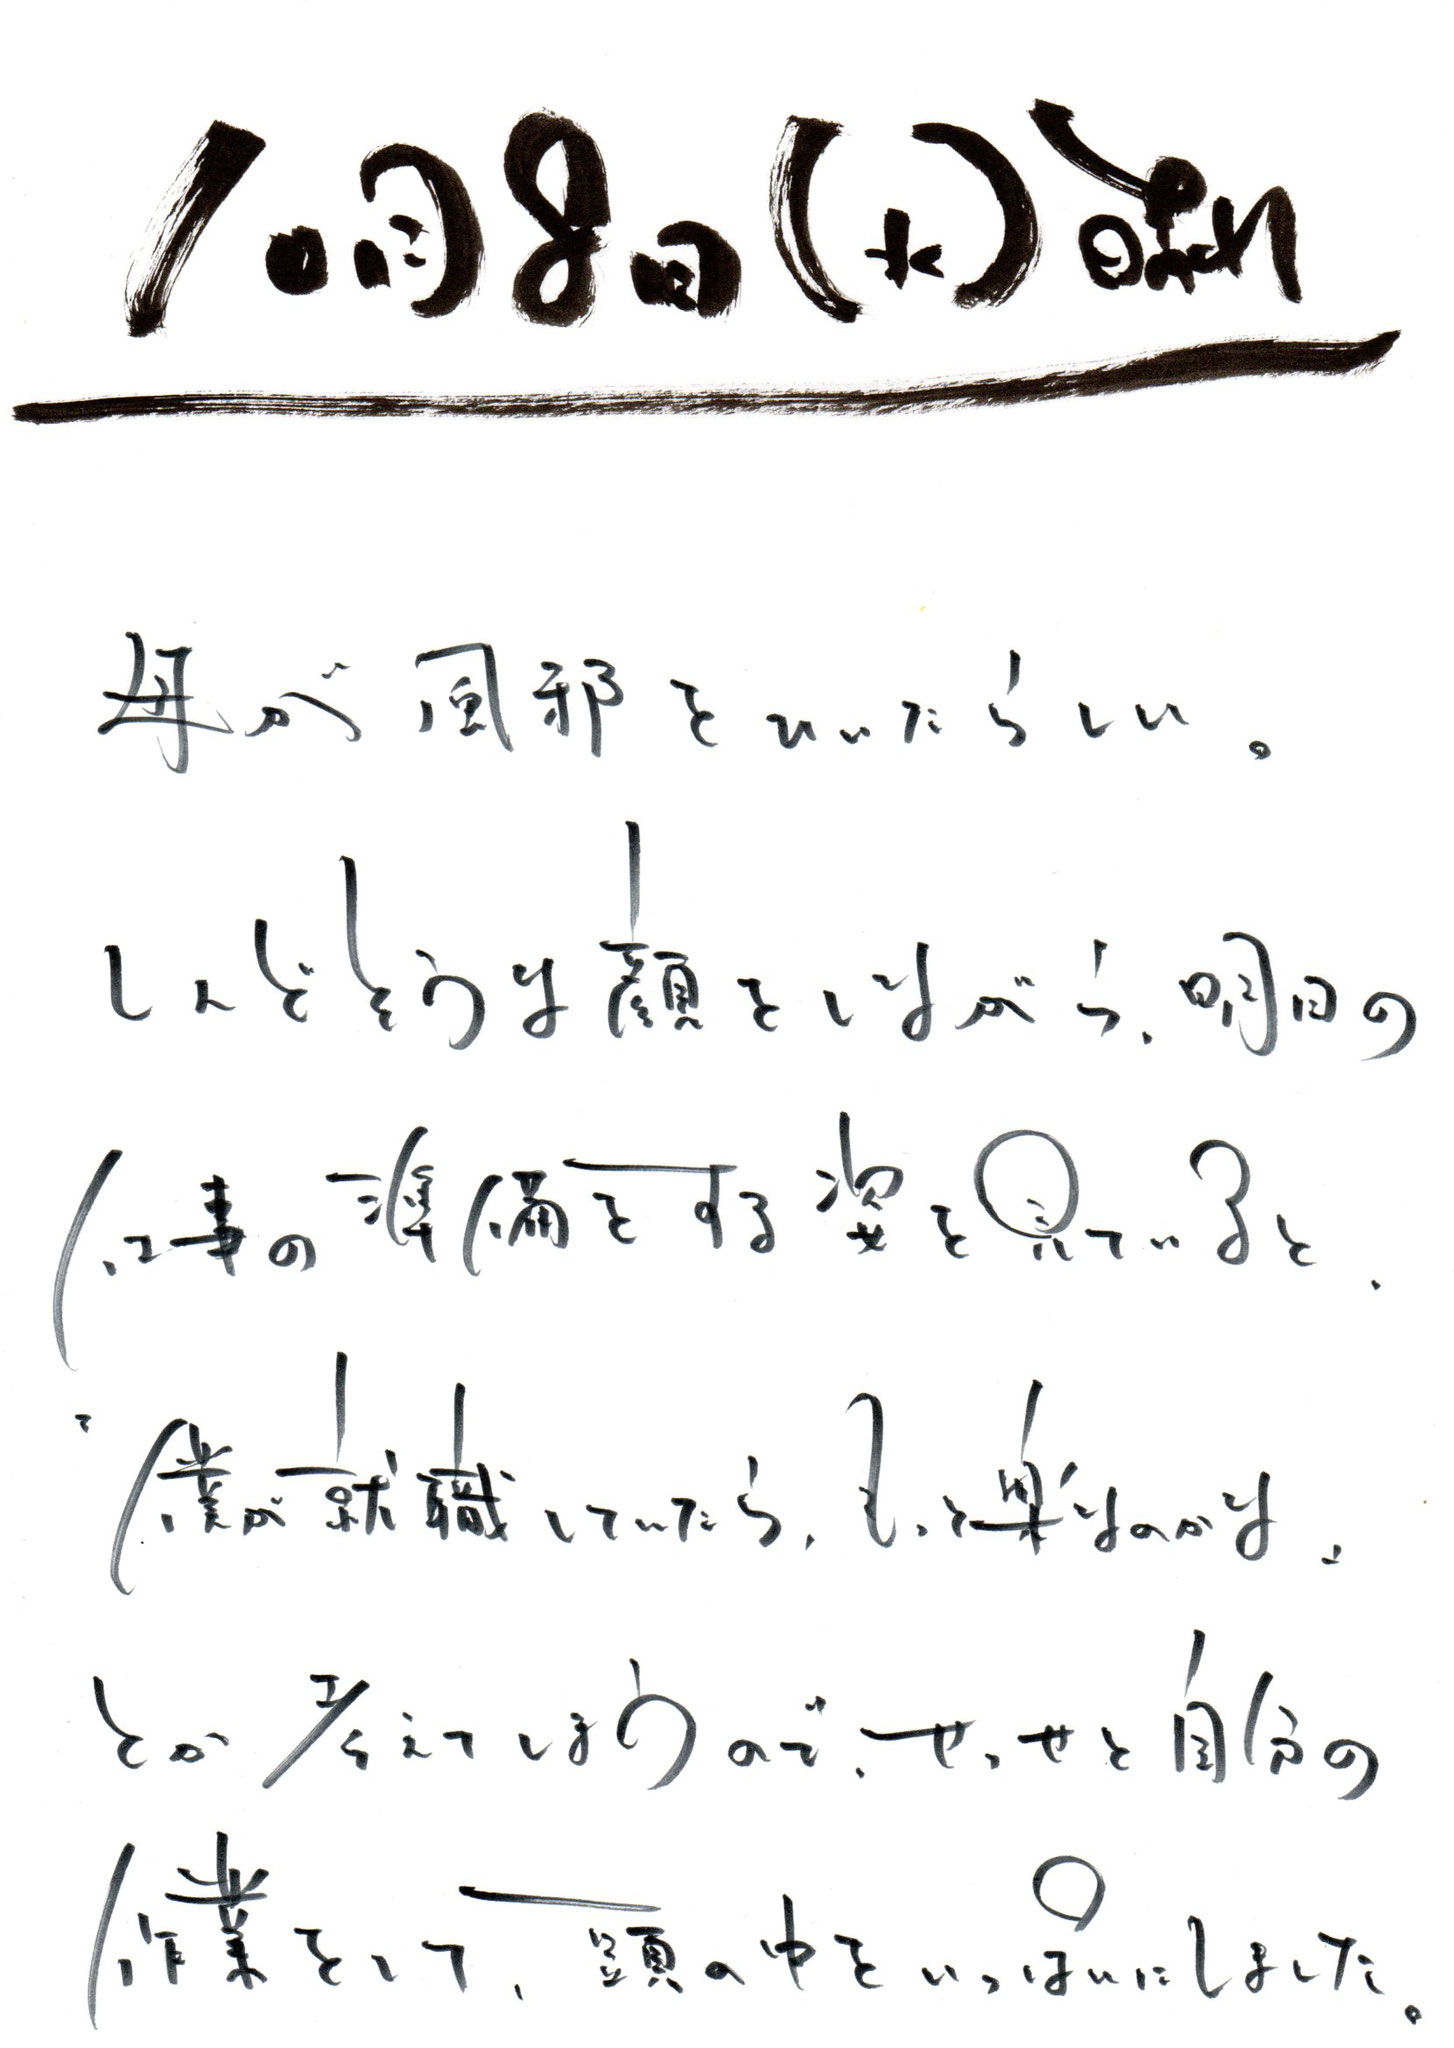 10月8日(水)晴れ
母が風邪をひいたらしい。
しんどそうな顔をしながら、明日の
仕事の準備をする姿を見ていると、
「僕が就職していたら、もっと楽なのかな」
とか考えてしまうので、せっせと自分の
作業をして、頭の中をいっぱいにしました。